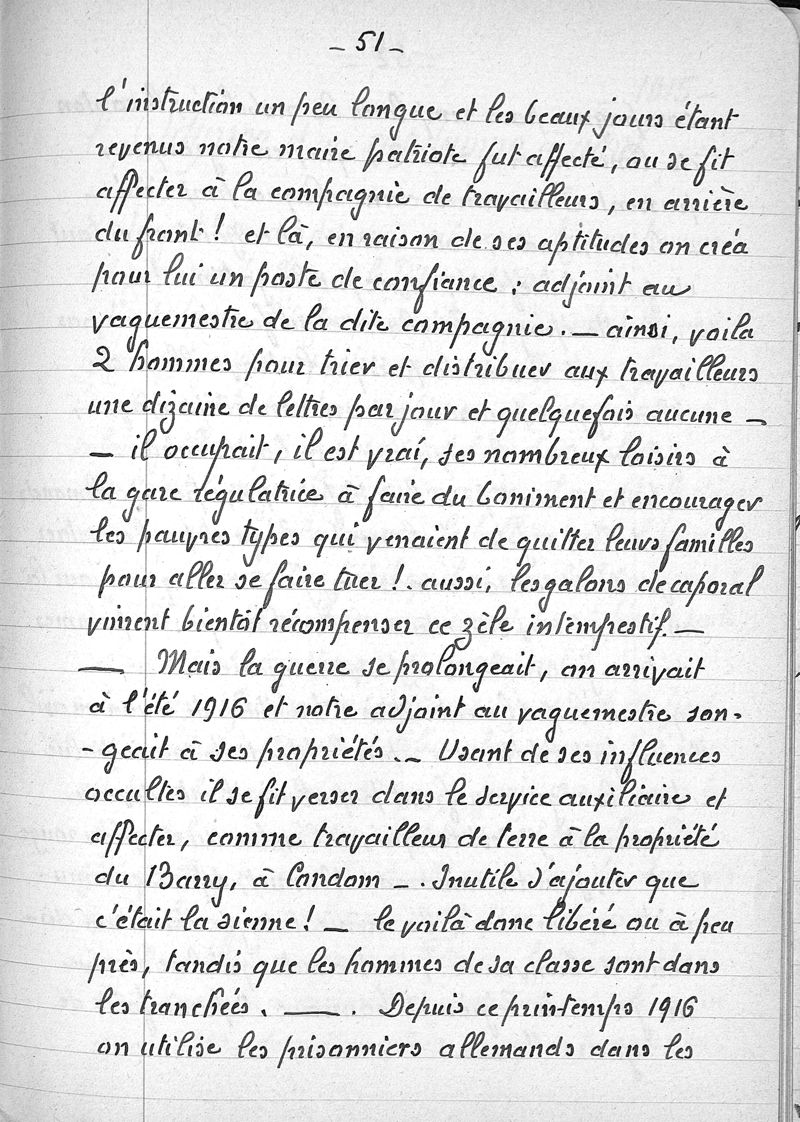 - 51 -
l'instruction un peu longue et les beaux jours étant
revenus notre maire patriote fut affecté, ou se fit
affecter à la compagnie de travailleurs, en arrière
du front ! et là, en raison de ses aptitudes on créa
pour lui un poste de confiance : adjoint au
vaguemestre de la dite compagnie. — ainsi, voila
2 hommes pour trier et distribuer aux travailleurs
une dizaine de lettres par jour et quelquefois aucune —
— il occupait, il est vrai, ses nombreux loisirs à
la gare régulatrice à faire du boniment et encourager
les pauvres types qui venaient de quitter leurs familles
pour aller se faire tuer !. aussi, les galons de caporal
vinrent bientôt récompenser ce zèle intempestif. —
— Mais la guerre se prolongeait, on arrivait
à l'été 1916 et notre adjoint au vaguemestre son-
- geait à ses propriétés. — Usant de ses influences
occultes il se fit verser dans le service auxiliaire et
affecter, comme travailleur de terre à la propriété
du Barry, à Condom — . Inutile d'ajouter que
c'était la sienne ! — le voilà donc libéré ou à peu
près, tandis que les hommes de sa classe sont dans
les tranchées. — . Depuis ce printemps 1916
on utilise les prisonniers allemands dans les